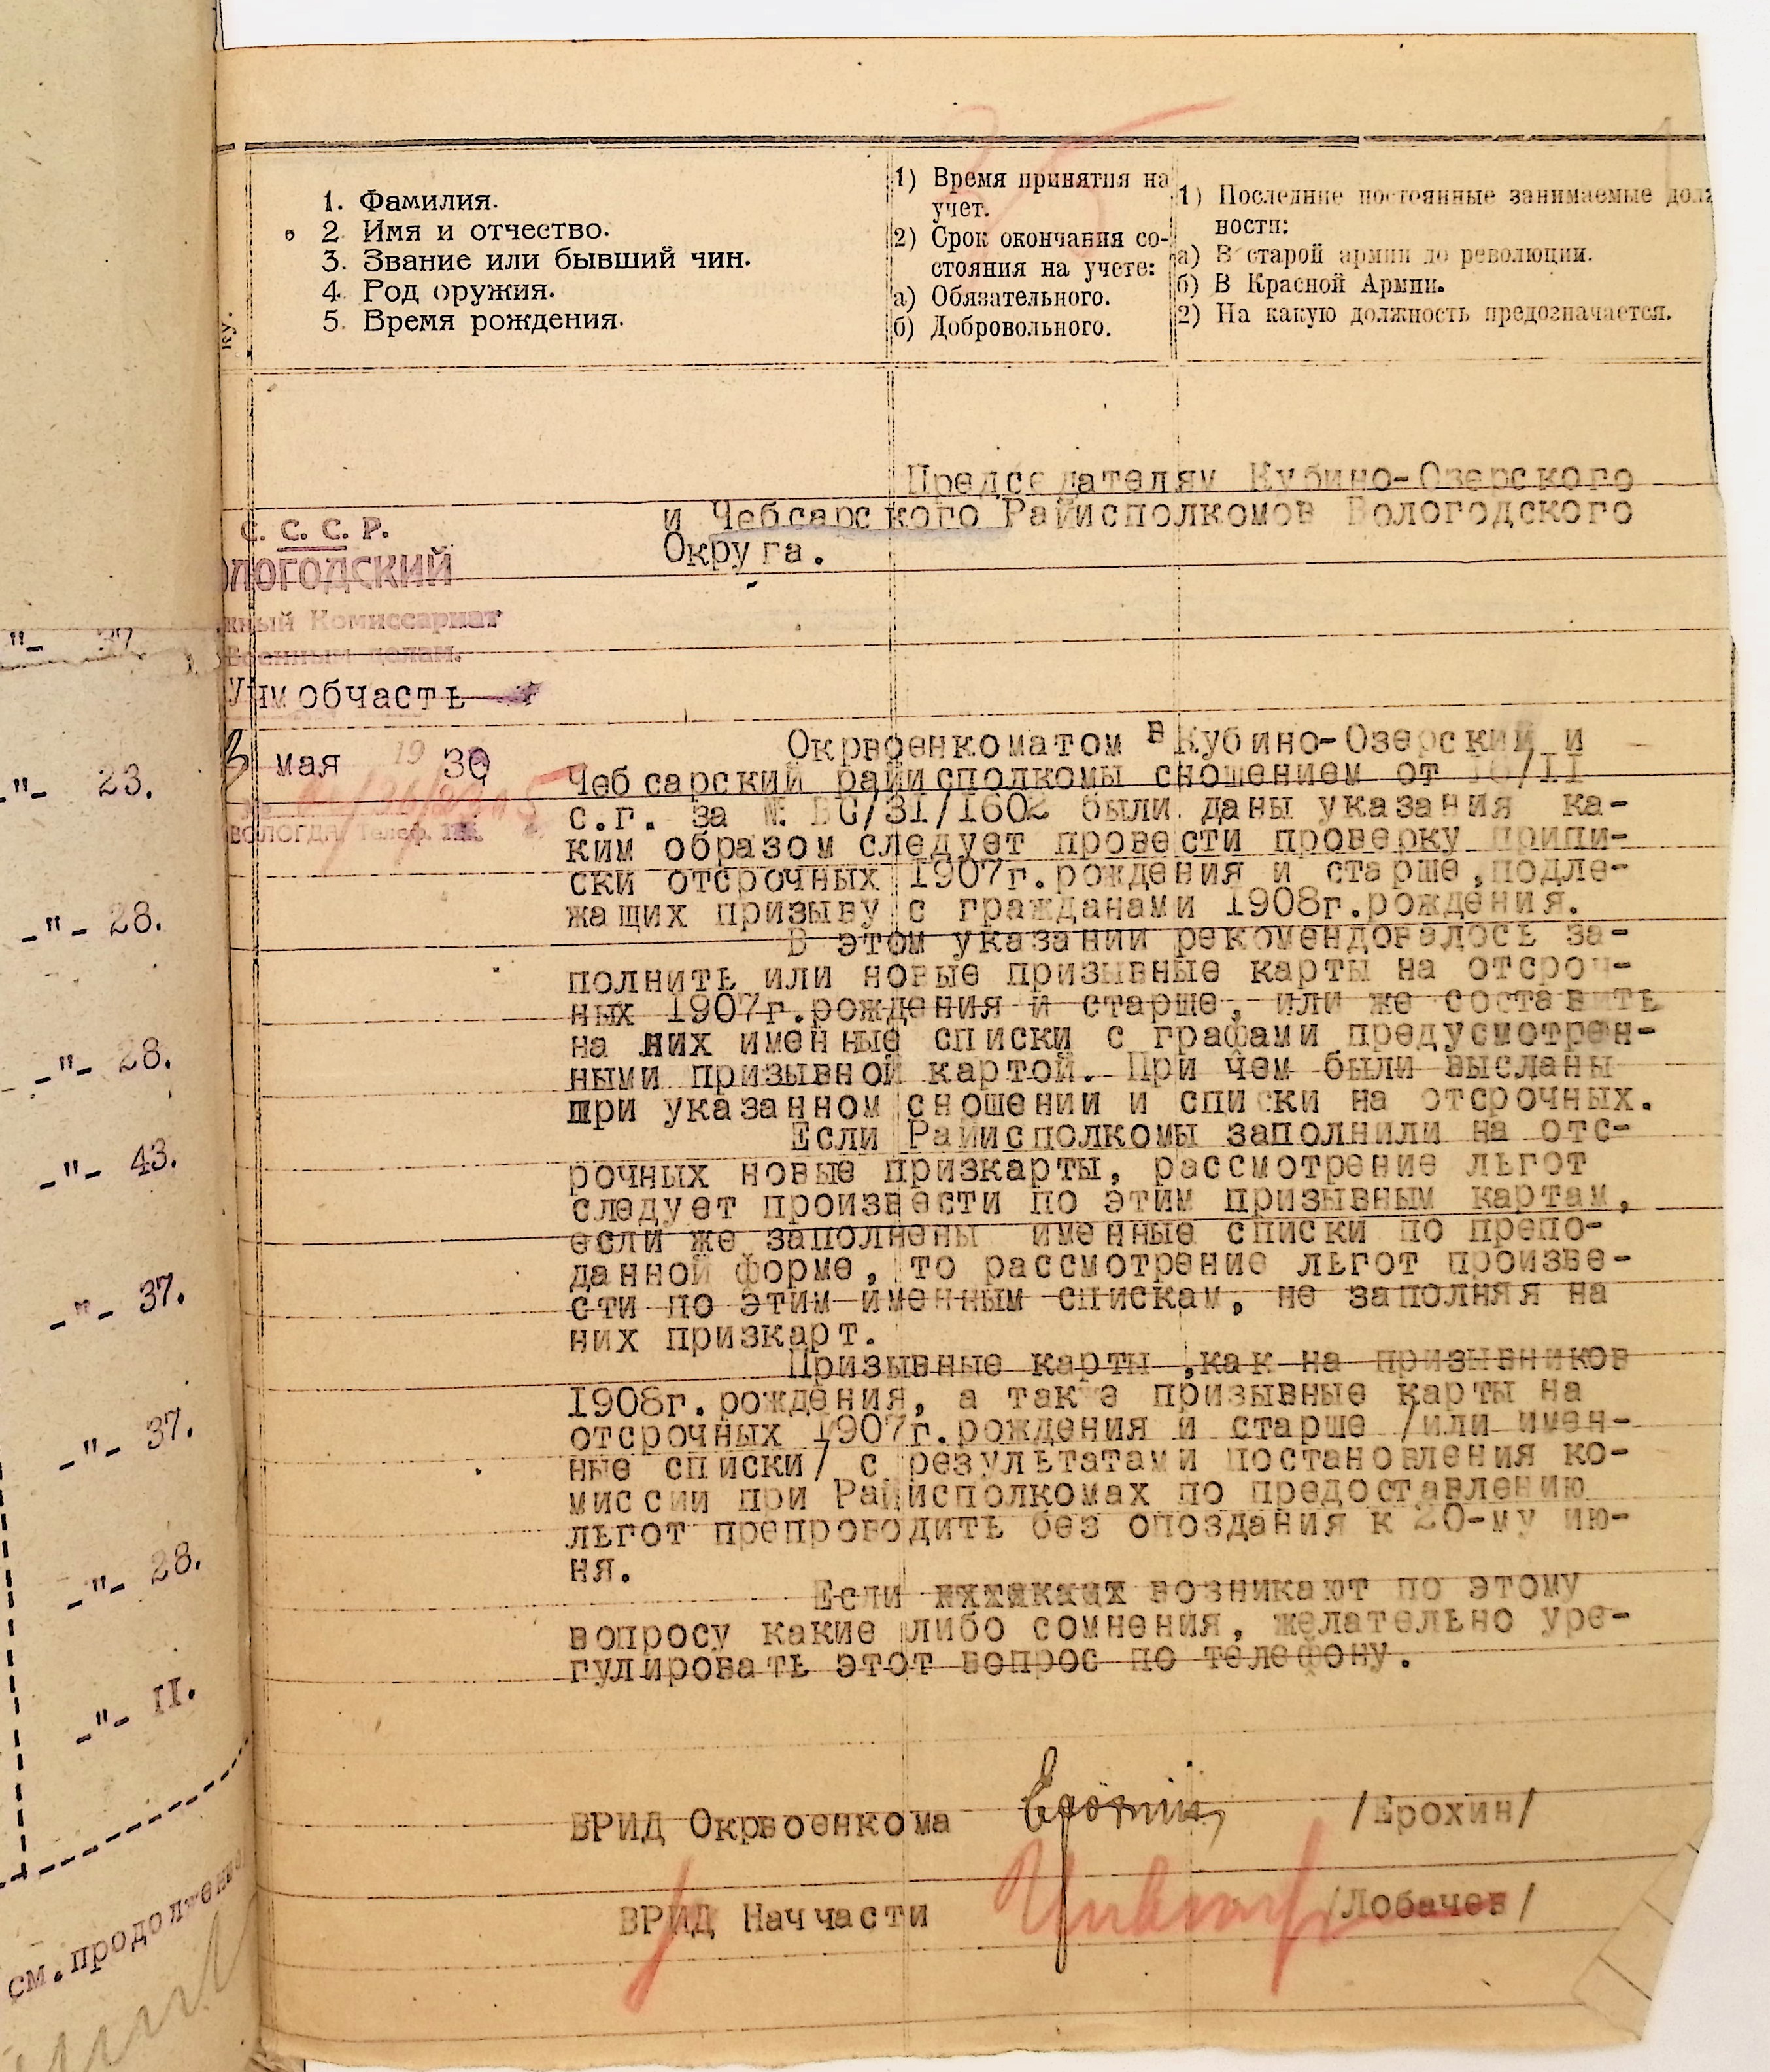 -"- 37.
-"- 23.
-"- 28.
-"- 28.
-"- 43.
-"- 37.
-"- 37.
-"- 28.
-"- II.
см.продолжени
ку.
1. Фамилия.
2 Имя и отчество.
3. Звание или бывший чин.
4 Род оружия.
5. Время рождения.
1) Время принятия на
учет.
2) Срок окончания со-
стояния на учете:
а) Обязательного.
б) Добровольного.
1) Последние постоянные занимаемые долж
ности:
а) В старой армии до революции.
б) В Красной Армии.
2) На какую должность предозначается.
35
Председателям Кубино-Озерского
и Чебсарского Райисполкомов Вологодского
Округа.
С. С. С. Р.
ОЛОГОДСКИЙ
жный Комиссариат
Военным делам.
Унмобчасть
3 мая 1930
ВОЛОГДА, Телеф.
Окрвоенкоматом в Кубино-Озерский и
Чебсарский райисполкомы сношением от /II
с.г. за № ВС/31/1602 были даны указания ка-
ким образом следует провести проверку припи-
ски отсрочных 1907г.рождения и старше,подле-
жащих призыву с гражданами 1908г.рождения.
В этом указании рекомендовалось за-
полнить или новые призывные карты на отсроч-
ных 1907г.рождения и старше, или же составить
на них именные списки с графами предусмотрен-
ными призывной картой. При чем были высланы
при указанном сношении и списки на отсрочных.
Если Райисполкомы заполнили на отс-
рочных новые призкарты, рассмотрение льгот
следует произвести по этим призывным картам,
если же заполнены именные списки по препо-
данной форме, то рассмотрение льгот произве-
сти по этим именным спискам, не заполняя на
них призкарт.
Призывные карты ,как на призывников
1908г.рождения, а так э призывные карты на
отсрочных 1907г.рождения и старше /или имен-
ные списки/ с результатами постановления ко-
миссии при Райисполкомах по предоставлению
льгот препроводить без опоздания к 20-му ию-
ня.
Если возникают по этому
вопросу какие либо сомнения, желательно уре-
гулировать этот вопрос по телефону.
ВРИД Окрвоенкома Ерохин /Ерохин/
ВРИД Наччасти /Лобачев/